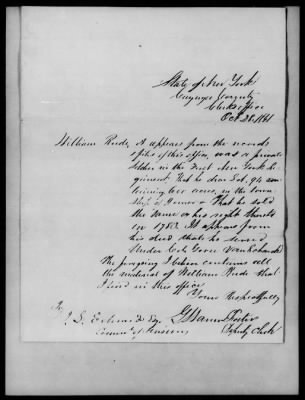 State of New York
Cayuga County
Clerks office
Oct 28 1851
William Pride, it appears from the records
& files of this office, was a private
soldier in the First New York Re
giment. That he drew Lot, 82 con
taining 600 acres, in the town
ship of Homer & That he sold
the same or his right thereto
in 1783. It appears from
his deed that he served
under Col. Goose Van Schaick
The foregoing I believe contains all
the evidence of William Pride that
I find in this office
Yours Respectfully
To
J. E. Edwards Esq
Deputy Clerk
Commr of Pensions